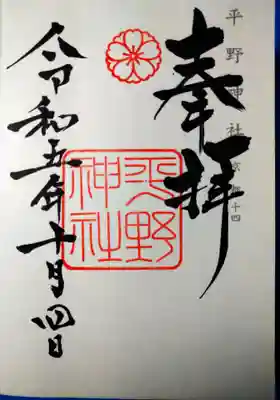 平野神社
奉拝
平野
神社
令和五年十月四日